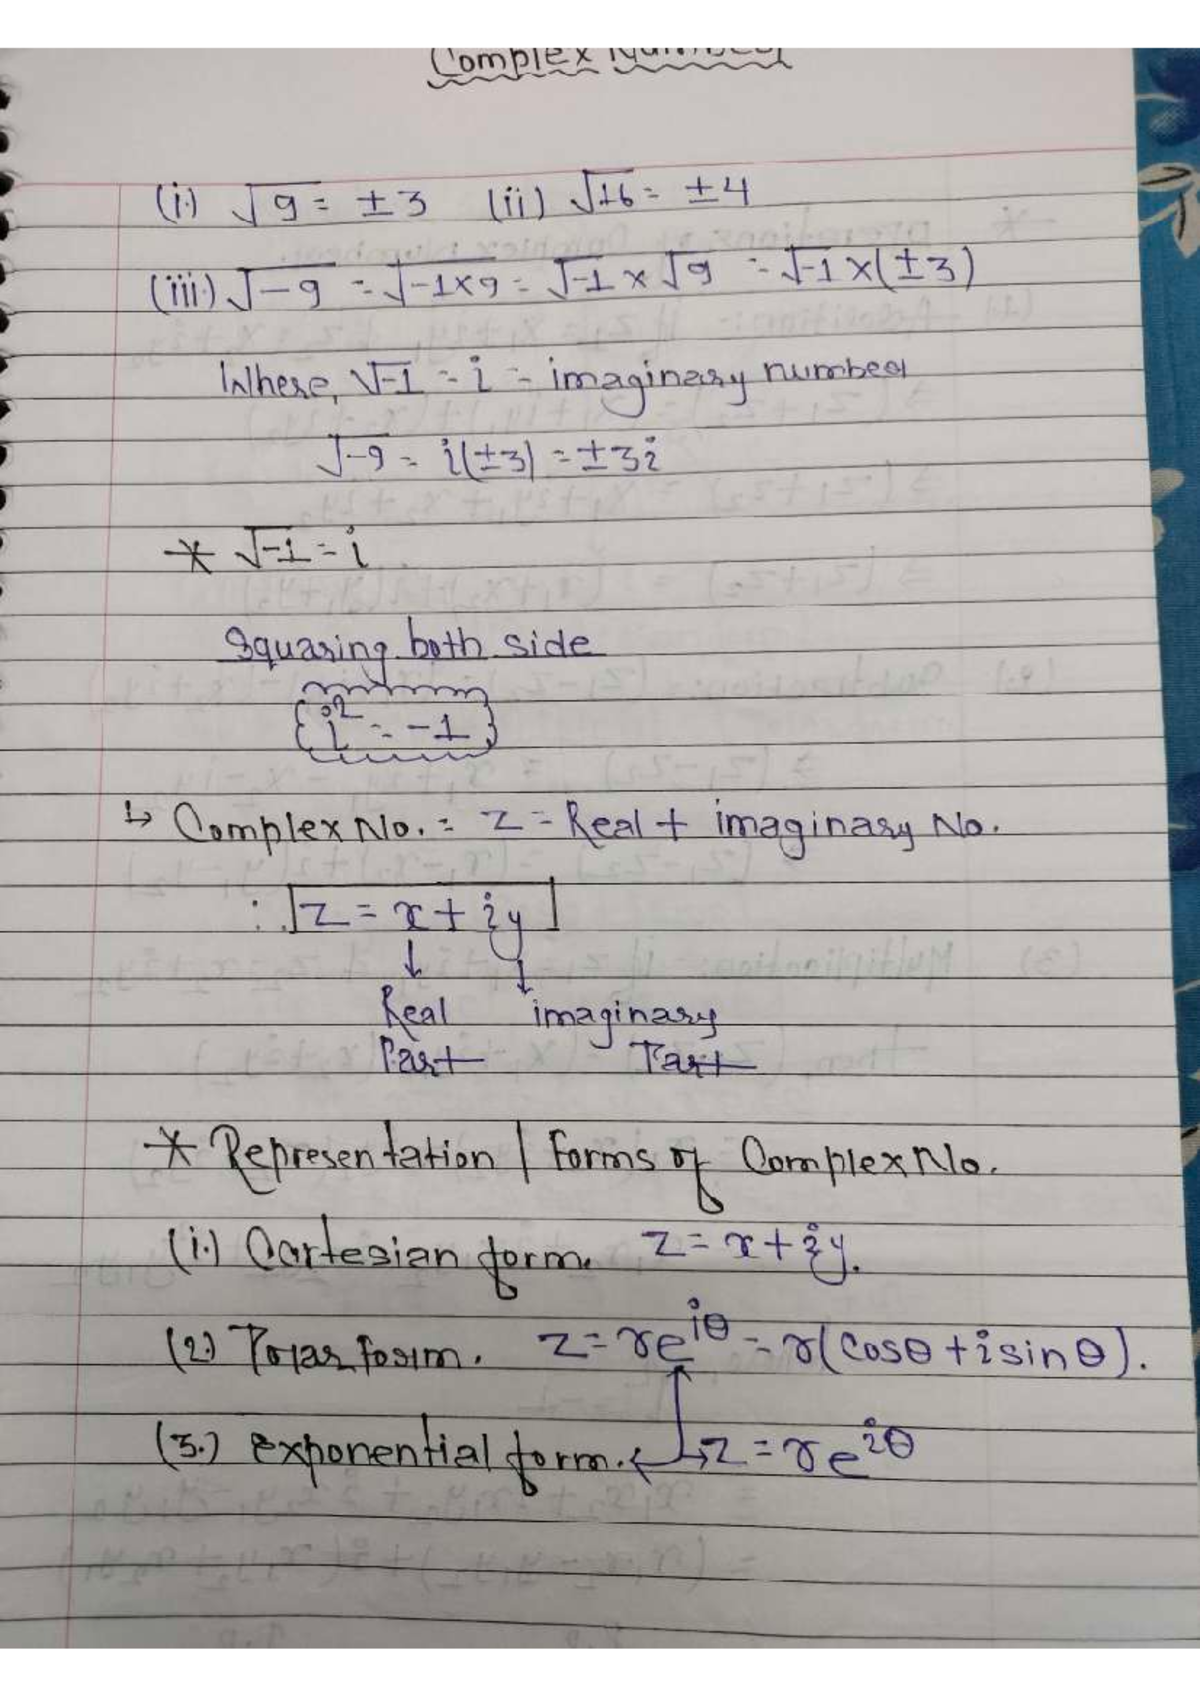 Complex Number
(i.) √9 = ±3 (ii) √16 = ±4
(iii.) √-9 = √-1×9 = √-1 × √9 = √-1 × (±3)
Where, √-1 = i = imaginary number
√-9 = i(±3) = ±3i
* √-1 = i
Squaring both side
i² = -1
↳ Complex No. = z = Real + imaginary No.
∴ z = x + iy
↓ ↓
Real imaginary
Part Part
* Representation / Forms of Complex No.
(i.) Cartesian form. z = x + iy.
(2.) Polar form. z = re^iθ = r(cosθ + i sinθ).
(3.) exponential form. ↔ z = re^iθ